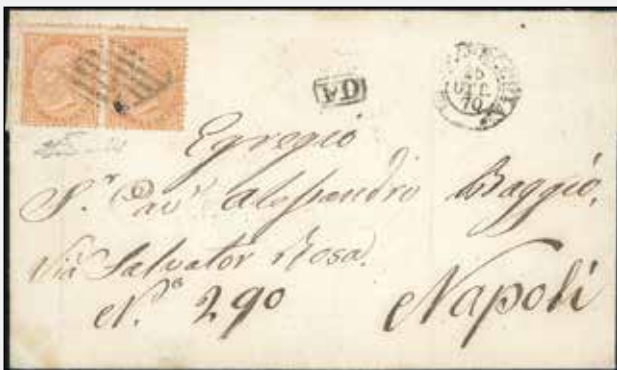 PD
70
Egregio
S.r Cav.r Alessandro Baggio,
Via Salvator Rosa.
N.o 290 Napoli